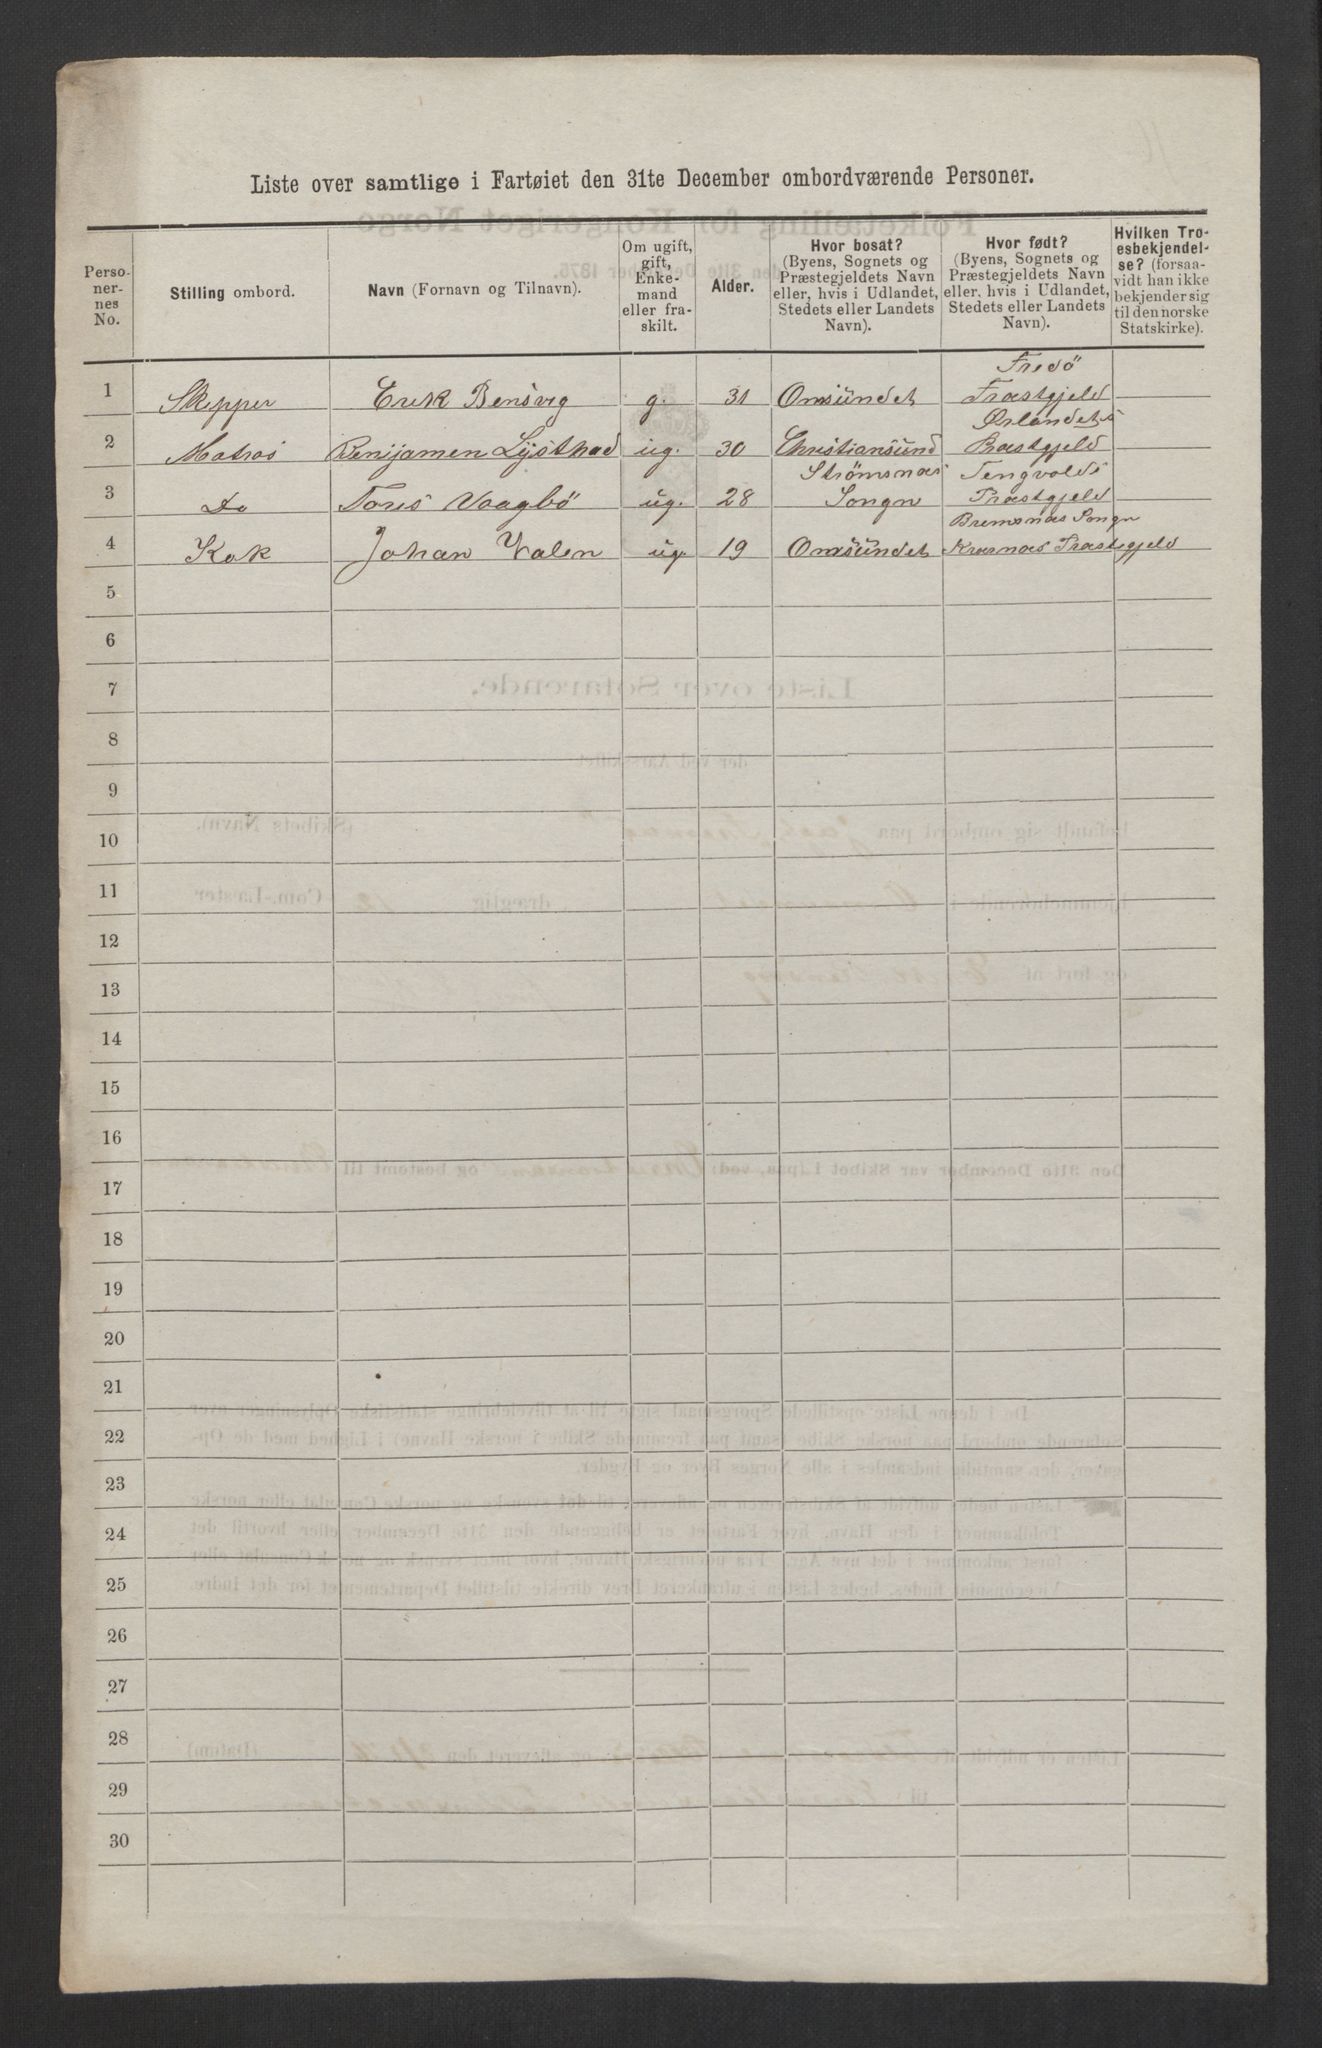 Liste over samtlige i Fartøiet den 31te December ombordværende Personer.
Perso-
ner-
nes
No.
Stilling ombord.
Navn (Fornavn og Tilnavn).
Om ugift,
gift,
Enke-
mand
eller fra-
skilt.
Alder.
Hvor bosat?
(Byens, Sognets og
Præstegjeldets Navn
eller, hvis i Udlandet,
Stedets eller Landets
Navn).
Hvor født?
(Byens, Sognets og
Præstegjeldets Navn
eller, hvis i Udlandet,
Stedets eller Landets
Navn).
Hvilken Tro-
esbekjendel-
se? (forsaa-
vidt han ikke
bekjender sig
til den norske
Statskirke).
Fredö
1 Skipper Erik Bensvig g. 31 Omsundet Præstgjeld
Ørlandets
2 Matros Benijamen Lysthad ug. 30 Christiansund Præstgjeld
Strømsnæs Tengvolds
3 Do Vaagbö ug. 28 Songn Præstgjeld
Bremsnæs Songn
4 Kok Johan Valen ug. 19 Omsundet Præstegjeld
5
6
7
8
9
10
11
12
13
14
15
16
17
18
19
20
21
22
23
24
25
26
27
28
29
30